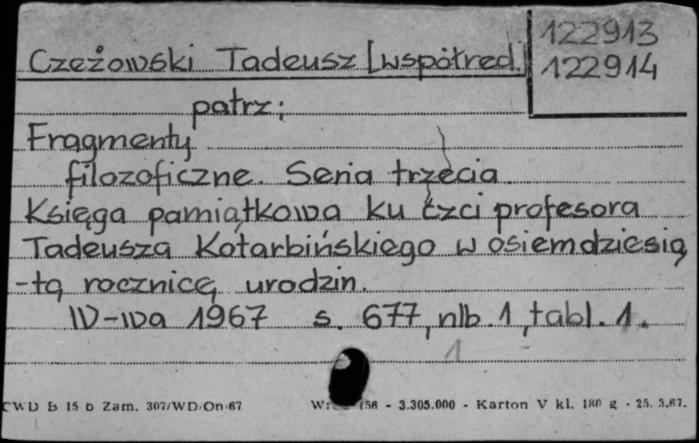 Czeżowski Tadeusz [współred.]
122913
122914
patrz:
Fragmenty
filozoficzne. Seria trzecia.
Księga pamiątkowa ku czci profesora
Tadeusza Kotarbińskiego w osiemdziesią
-tą rocznicę urodzin.
W-wa 1967 s. 677, nlb. 1, tabl. 1.
1
CWD B 15 b Zam. 307/WD/On/67 156 - 3.305.000 - Karton V kl. 180 g - 25. 3.67.